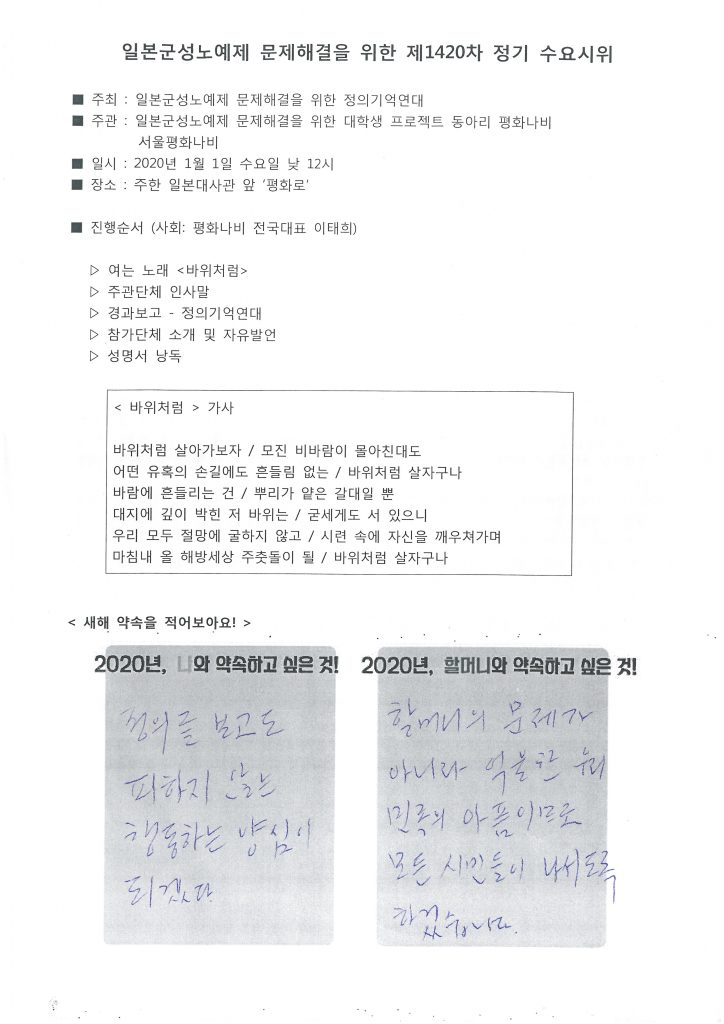 일본군성노예제 문제해결을 위한 제1420차 정기 수요시위
■ 주최 : 일본군성노예제 문제해결을 위한 정의기억연대
■ 주관 : 일본군성노예제 문제해결을 위한 대학생 프로젝트 동아리 평화나비
서울평화나비
■ 일시 : 2020년 1월 1일 수요일 낮 12시
■ 장소 : 주한 일본대사관 앞 '평화로'
■ 진행순서 (사회: 평화나비 전국대표 이태희)
▷ 여는 노래 <바위처럼>
▷ 주관단체 인사말
▷ 경과보고 - 정의기억연대
▷ 참가단체 소개 및 자유발언
▷ 성명서 낭독
< 바위처럼 > 가사
바위처럼 살아가보자 / 모진 비바람이 몰아친대도
어떤 유혹의 손길에도 흔들림 없는 / 바위처럼 살자구나
바람에 흔들리는 건 / 뿌리가 얕은 갈대일 뿐
대지에 깊이 박힌 저 바위는 / 굳세게도 서 있으니
우리 모두 절망에 굴하지 않고 / 시련 속에 자신을 깨우쳐가며
마침내 올 해방세상 주춧돌이 될 / 바위처럼 살자구나
< 새해 약속을 적어보아요! >
2020년, 나와 약속하고 싶은 것!
정의를 보고도
피하지 않는
행동하는 양심이
되겠다
2020년, 할머니와 약속하고 싶은 것!
할머니의 문제가
아니라 억울한 우리
민족의 아픔이므로
모든 시민들이 나서도록
하겠습니다.